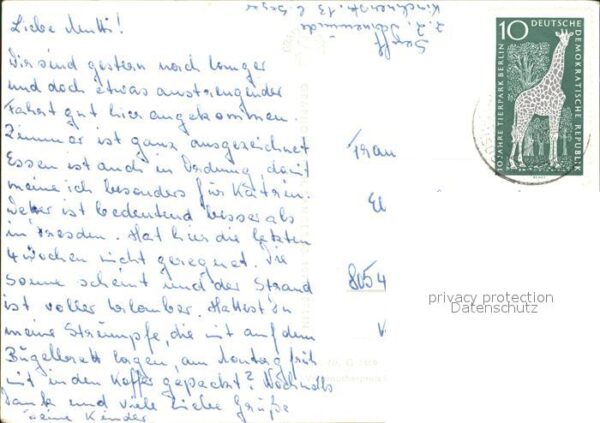 Liebe Mutti!
Wir sind gestern nach langer
und doch etwas anstrengender
Fahrt gut hier angekommen.
Zimmer ist ganz ausgezeichnet
Essen ist auch in Ordnung damit
meine ich besonders für Katrin.
Wetter ist bedeutend besser als
in Dresden. Hat hier die letzten
4 Wochen nicht geregnet. Die
Sonne scheint und der Strand
ist voller Urlauber. Hattest Du
meine Strümpfe, die mit auf dem
Bügelbrett lagen, am Montag früh
mit in den Koffer gepackt? Nochmals
Dank und viele liebe Grüße
Deine Kinder
z. Z. Warnemünde
Kirchenstr. 13 b.
10
DEUTSCHE
DEMOKRATISCHE REPUBLIK
10 JAHRE TIERPARK BERLIN
Frau
El
8054
privacy protection
Datenschutz